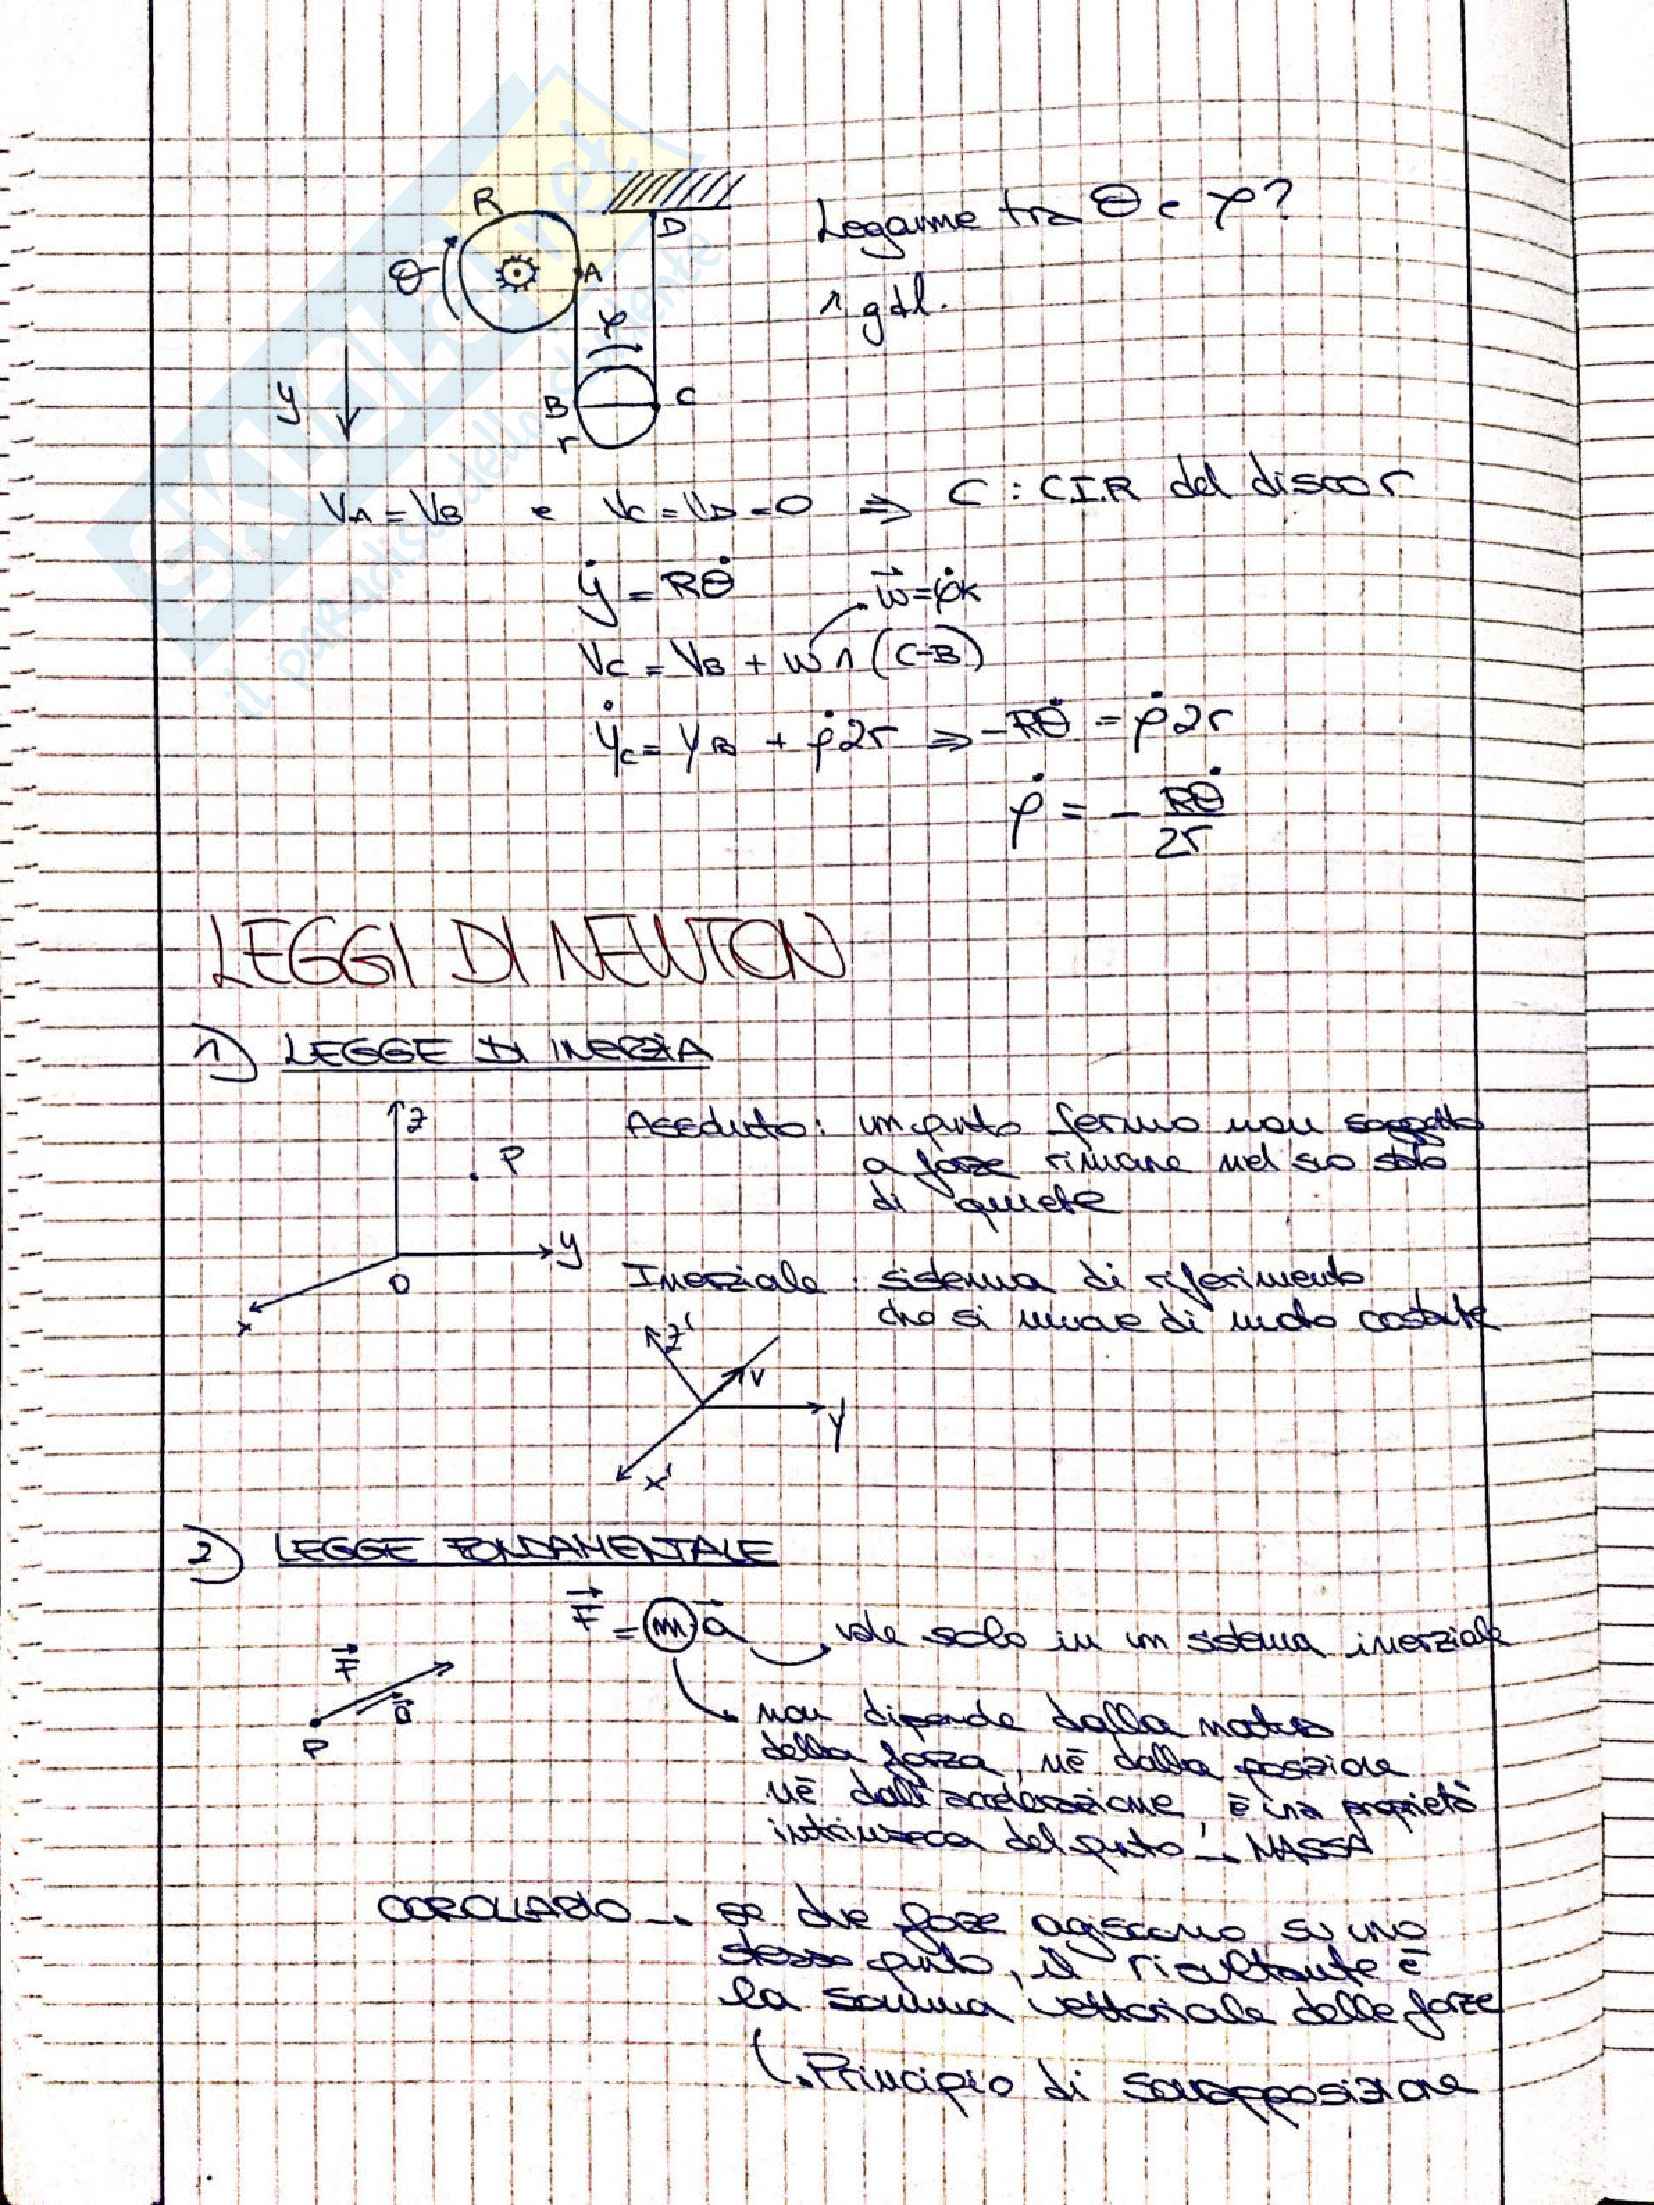 R
D
Legame tra θ e φ?
θ
A
1 gdl.
φ
y
B
C
r
VA = VB e VC = VD = 0 ⇒ C : C.I.R del disco r
ẏ = Rθ̇
w⃗ = φ̇k
VC = VB + w ∧ (C-B)
ẏC = yB + φ̇2r ⇒ -Rθ̇ = φ̇2r
φ̇ = - Rθ̇
2r
LEGGI DI NEWTON
1) LEGGE DI INERZIA
z
P
Assoluto: un punto fermo non soggetto
a forze rimane nel suo stato
di quiete
y
O
x
Inerziale : sistema di riferimento
che si muove di moto costante
z'
v
y
x'
2) LEGGE FONDAMENTALE
F⃗ = m a⃗ vale solo in un sistema inerziale
F⃗
a⃗
P
non dipende dalla natura
della forza, né dalla posizione
né dall'accelerazione, è una proprietà
intrinseca del punto → MASSA
COROLLARIO → se due forze agiscono su uno
stesso punto, il risultante è
la somma vettoriale delle forze
Principio di sovrapposizione
SKUOLA.net
il paradiso dello studente